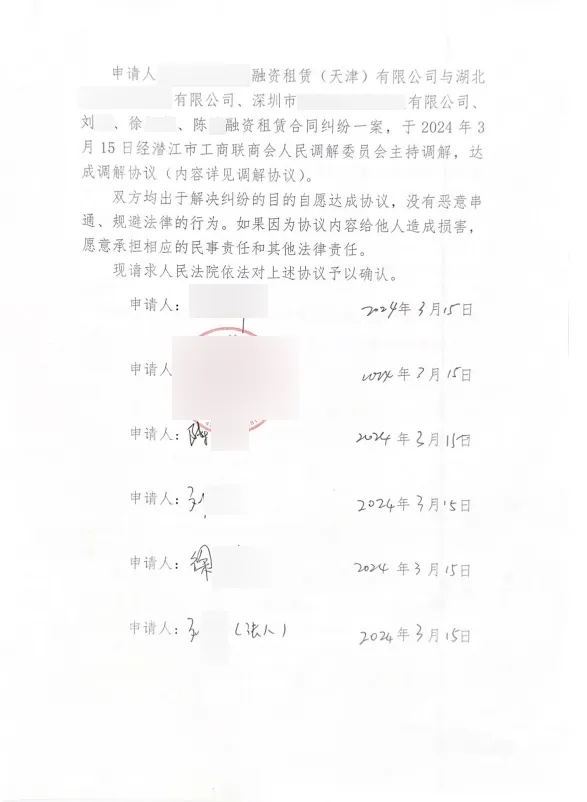 申请人 融资租赁（天津）有限公司与湖北
有限公司、深圳市 有限公司、
刘 、徐 、陈 融资租赁合同纠纷一案，于 2024 年 3
月 15 日经潜江市工商联商会人民调解委员会主持调解，达
成调解协议（内容详见调解协议）。
双方均出于解决纠纷的目的自愿达成协议，没有恶意串
通、规避法律的行为。如果因为协议内容给他人造成损害，
愿意承担相应的民事责任和其他法律责任。
现请求人民法院依法对上述协议予以确认。
申请人： 2024年3月15日
申请人 2024年3月15日
申请人：陈 2024年3月15日
申请人： 2024年3月15日
申请人：徐 2024年3月15日
申请人： （法人） 2024年3月15日